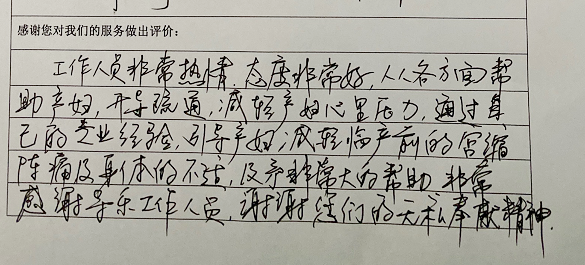 感谢您对我们的服务做出评价:
工作人员非常热情,态度非常好,从各方面帮
助产妇,开导疏通,减轻产妇心里压力,通过自
己的专业经验,引导产妇,减轻临产前的宫缩
阵痛及身体的不适,及予非常大的帮助,非常
感谢导乐工作人员,谢谢您们的无私奉献精神.